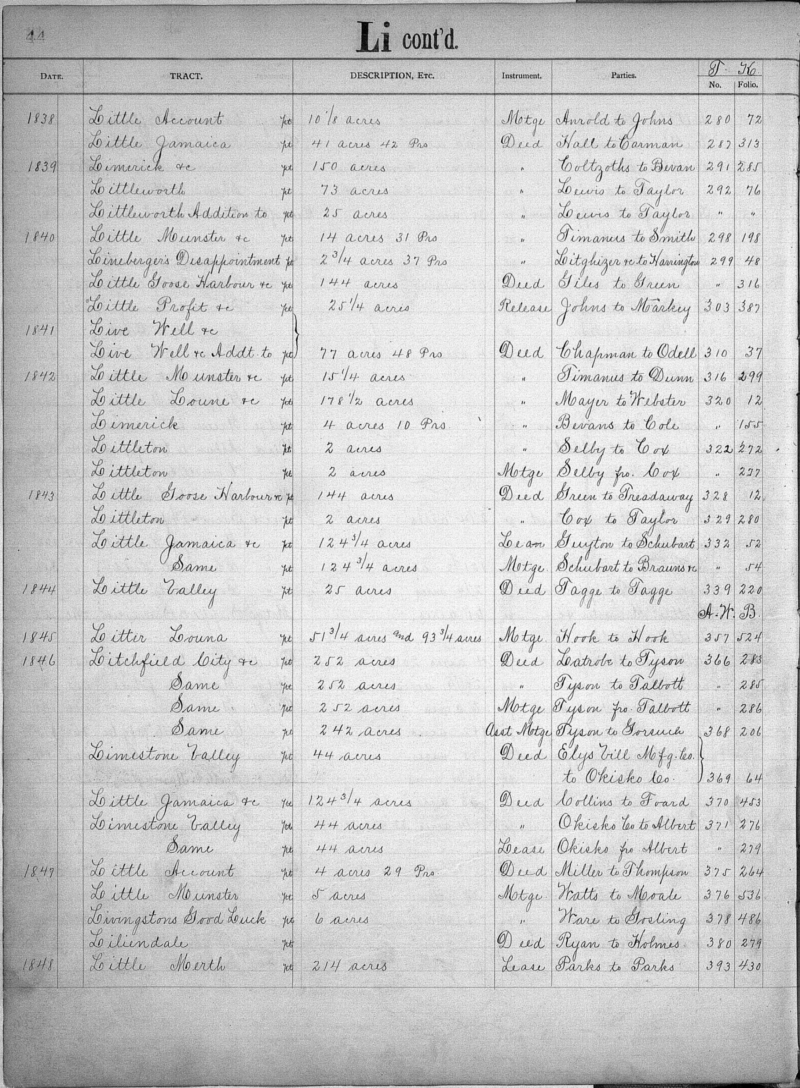 44
Li cont'd.
DATE. TRACT. DESCRIPTION, ETC. Instrument. Parties. T. K.
No. Folio.
1838 Little Account pt 10 1/8 acres Mtge Anrold to Johns 280 72
Little Jamaica pt 41 acres 42 Prs Deed Hall to Carman 287 313
1839 Limerick &c pt 150 acres " Coltzoths to Bevan 291 285
Littleworth pt 73 acres " Lewis to Taylor 292 76
Littleworth Addition to pt 25 acres " Lewis to Taylor " "
1840 Little Munster &c pt 14 acres 31 Prs " Timanus to Smith 298 198
Linebergers Disappointment pt 2 3/4 acres 37 Prs " Litghizer &c to Harrington 299 48
Little Goose Harbour &c pt 144 acres Deed Giles to Green " 316
Little Profit &c pt 25 1/4 acres Release Johns to Markey 303 387
1841 Live Well &c
Live Well &c Addt to pt 77 acres 48 Prs Deed Chapman to Odell 310 37
1842 Little Munster &c pt 15 1/4 acres " Timanus to Dunn 316 299
Little Loune &c pt 178 1/2 acres " Mayer to Webster 320 12
Limerick pt 4 acres 10 Prs " Bevans to Cole " 155
Littleton pt 2 acres " Selby to Cox 322 272
Littleton pt 2 acres Mtge Selby fro. Cox " 237
1843 Little Goose Harbour &c pt 144 acres Deed Green to Treadaway 328 12
Littleton pt 2 acres " Cox to Taylor 329 280
Little Jamaica &c pt 124 3/4 acres Lease Guyton to Schubart 332 52
Same pt 124 3/4 acres Mtge Schubart to Brauns &c " 54
1844 Little Valley pt 25 acres Deed Tagge to Tagge 339 220
A. W. B.
1845 Litter Louna pt 51 3/4 acres and 93 3/4 acres Mtge Hook to Hook 357 524
1846 Litchfield City &c pt 252 acres Deed Latrobe to Tyson 366 283
Same pt 252 acres " Tyson to Talbott " 285
Same pt 252 acres Mtge Tyson fro. Talbott " 286
Same pt 242 acres Asst Mtge Tyson to Gorsuch 368 206
Limestone Valley pt 44 acres Deed Elys Vill Mfg. Co.
to Okisko Co. 369 64
Little Jamaica &c pt 124 3/4 acres Deed Collins to Foard 370 453
Limestone Valley pt 44 acres " Okisko Co to Albert 371 276
Same pt 44 acres Lease Okisko fro Albert " 279
1847 Little Account pt 4 acres 29 Prs Deed Miller to Thompson 375 264
Little Munster pt 5 acres Mtge Watts to Moale 376 536
Livingstons Good Luck pt 6 acres " Ware to Gosling 378 486
Liliendale pt Deed Ryan to Holmes 380 279
1848 Little Merth pt 214 acres Lease Parks to Parks 393 430